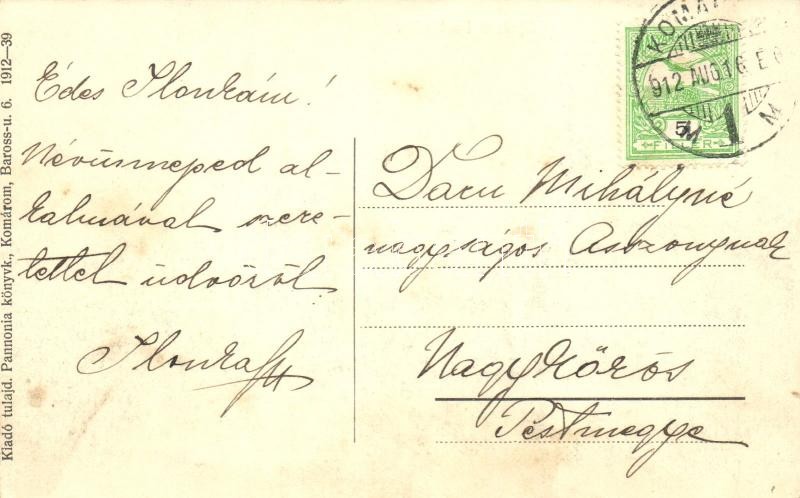 Kiadó tulajd. Pannonia könyvk., Komárom, Baross-u. 6. 1912—39
Édes Ilonkám!
Névünneped al-
kalmával szere-
tettel üdvözöl
Ilonka
KOMÁ
912 AUG 16 E
M 1 M
5
FILLÉR
Daru Mihályné
nagyságos Asszonynak
Nagykőrös
Pestmegye